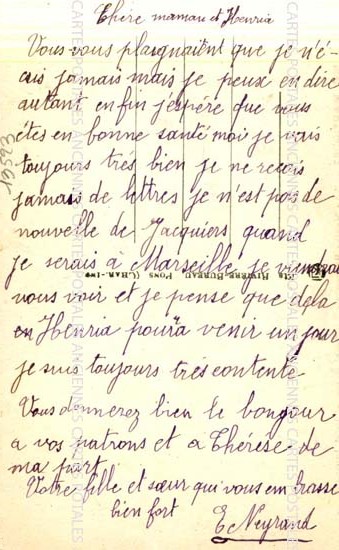 Chère maman et Henria
Vous vous plaignaient que je n'é-
cris jamais mais je peux en dire
autant en fin j'éspère que vous
étes en bonne santé moi je vais
toujours trés bien je ne reçois
jamais de lettres je n'est pas de
nouvelle de Jacquiers quand
je serais à Marseille je viendrai
vous voir et je pense que dela
en Henria poura venir un jour
je suis toujours trés contente
Vous donnerez bien le bonjour
a vos patrons et a Thérèse de
ma part
Votre fille et sœur qui vous em brasse
bien fort
E Neyrand
19593
CARTES POSTALES ANCIENNES CARTES POSTALES